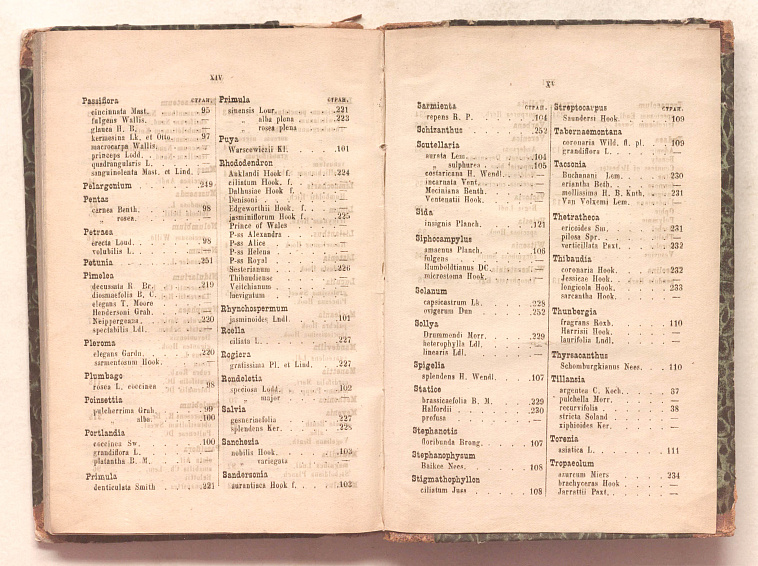 XIV
Passiflora СТРАН.
cincinnata Mast. 95
fulgens Wallis. —
glauca H. B. —
kermesina Lk. et Otto. 97
macrocarpa Wallis. —
princeps Lodd. —
quadrangularis L. —
sanguinolenta Mast. et Lind. —
Pelargonium 249
Pentas
carnea Benth. 98
„ rosea. —
Petraea
erecta Loud. 98
volubilis L. —
Petunia 251
Pimelea
decussata R. Br. 219
diosmaefolia B. C. —
elegans T. Moore —
Hendersoni Grah. —
Neippergeana 220
spectabilis Ldl. —
Pleroma
elegans Gardn. 220
sarmentosum Hook. —
Plumbago
rosea L. coccinea 98
Poinsettia
pulcherrima Grah. 99
„ alba. 100
Portlandia
coccinea Sw. 100
grandiflora L. —
platantha B. M. —
Primula
denticulata Smith 221
Primula СТРАН.
sinensis Lour. 221
„ alba plena 223
„ rosea plena —
Puya
Warscewiczii Kl. 101
Rhododendron
Auklandi Hook f. 224
ciliatum Hook. f. —
Dalhusiae Hook f. —
Denisoni —
Edgeworthii Hook. f. —
jasminiflorum Hook f. 225
Prince of Wales —
P-ss Alexandra —
P-ss Alice —
P-ss Helena —
P-ss Royal —
Sesterianum 226
Thibaudiense —
Veitchianum —
laevigatum —
Rhynchospermum
jasminoides Lndl. 101
Roella
ciliata L. 227
Rogiera
gratissima Pl. et Lind. 227
Rondeletia
speciosa Lodd. 102
„ major —
Salvia
gesneriaefolia 227
splendens Ker. 228
Sanchezia
nobilis Hook. 103
„ variegata —
Sandersonia
aurantiaca Hook f. 103
XV
Sarmienta СТРАН.
repens R. P. 104
Schizanthus 252
Scutellaria
aurata Lem. 104
„ sulphurea 105
costaricana H. Wendl. —
incarnata Vent. —
Mociniana Benth. —
Ventenatii Hook. —
Sida
insignis Planch. 121
Siphocampylus
amaenus Planch. 106
fulgens —
Humboldtianus DC. —
microstoma Hook. —
Solanum
capsicastrum Lk. 228
ovigerum Dun 252
Sollya
Drummondi Morr. 229
heterophylla Ldl. —
linearis Ldl. —
Spigelia
splendens H. Wendl. 107
Statice
brassicaefolia B. M. 229
Halfordii 230
profusa —
Stephanotis
floribunda Brong. 107
Stephanophysum
Baikee Nees. 108
Stigmathophyllon
ciliatum Juss 108
Streptocarpus СТРАН.
Saundersi Hook. 109
Tabernaemontana
coronaria Wild. fl. pl. 109
grandiflora L. —
Tacsonia
Buchanani Lem. 230
eriantha Beth. —
mollissima H. B. Knth. 231
Van Volxemi Lem. —
Thetratheca
ericoides Sm. 231
pilosa Spr. —
verticillata Paxt. 232
Thibaudia
coronaria Hook. 232
Jessicae Hook. —
longicola Hook. 233
sarcantha Hook. —
Thunbergia
fragrans Roxb. 110
Harrisii Hook. —
laurifolia Lndl. —
Thyrsacanthus
Schomburgkianus Nees. 110
Tillansia
argentea C. Koch. 37
pulchella Morr. —
recurvifolia 38
stricta Soland —
xiphioides Ker. —
Torenia
asiatica L. 111
Tropaeolum
azureum Miers 234
brachyceras Hook —
Jarrattii Paxt. —